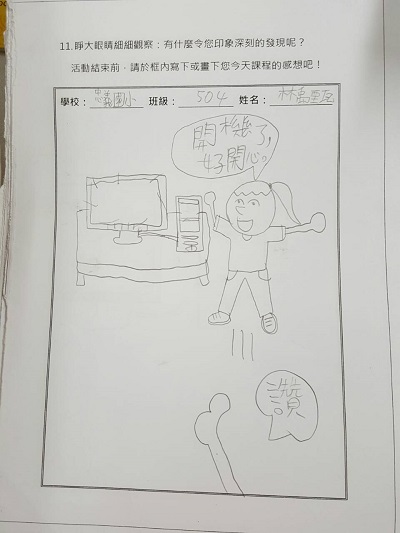 11.睜大眼睛細細觀察：有什麼令您印象深刻的發現呢？
活動結束前，請於框內寫下或畫下您今天課程的感想吧！
學校：忠義國小 班級：504 姓名：林
開機了，
好開心。
讚